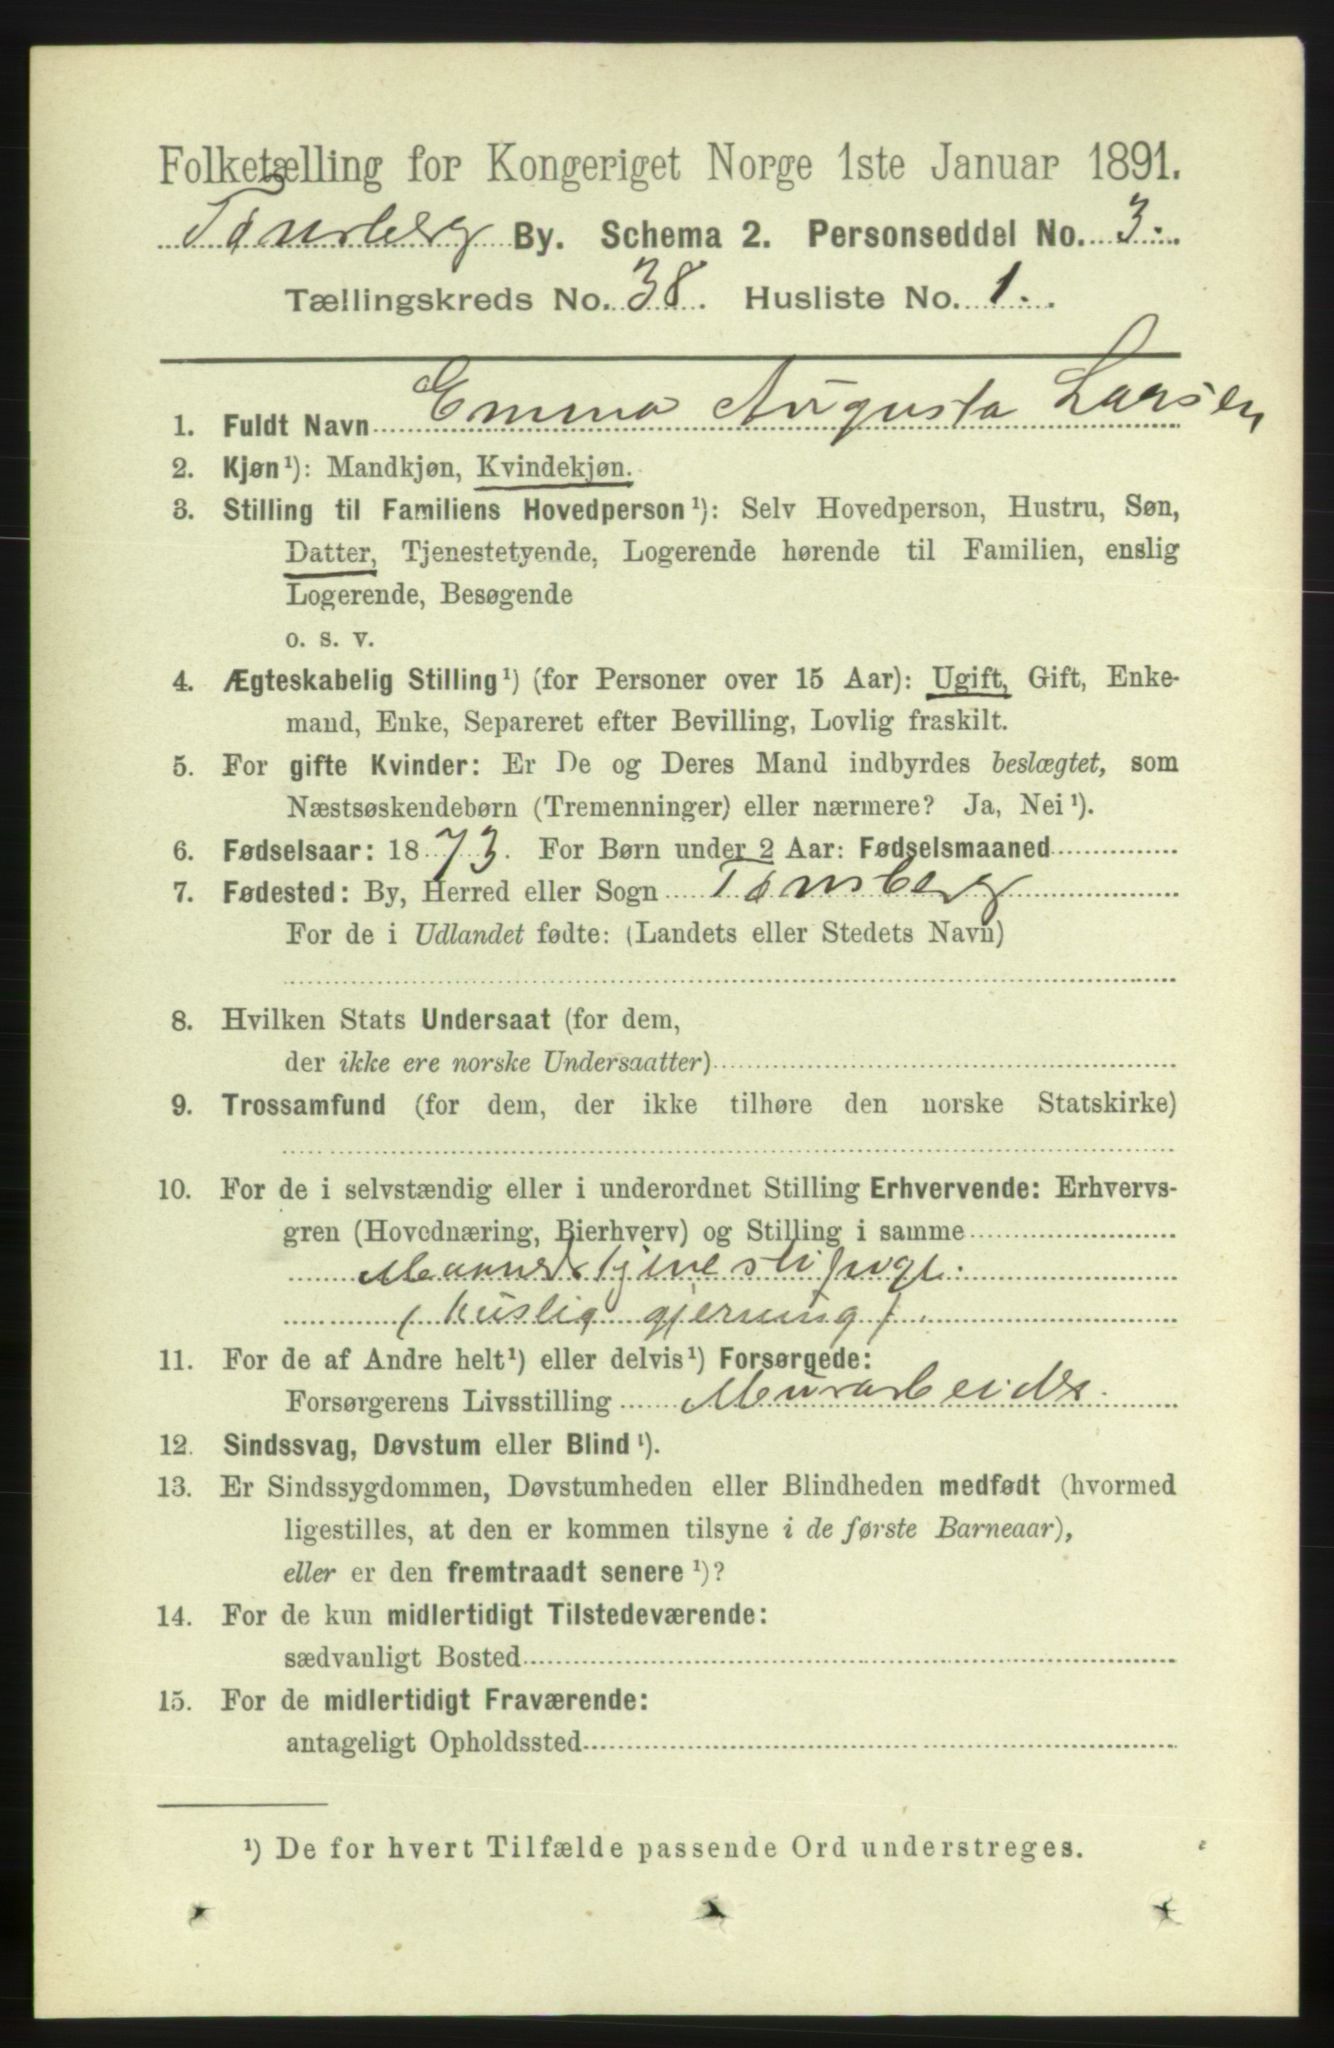 Folketælling for Kongeriget Norge 1ste Januar 1891.
Tønsberg By. Schema 2. Personseddel No. 3.
Tællingskreds No. 38. Husliste No. 1.
1. Fuldt Navn Emma Augusta Larsen
2. Kjøn¹): Mandkjøn, Kvindekjøn.
3. Stilling til Familiens Hovedperson¹): Selv Hovedperson, Hustru, Søn,
Datter, Tjenestetyende, Logerende hørende til Familien, enslig
Logerende, Besøgende
o. s. v.
4. Ægteskabelig Stilling¹) (for Personer over 15 Aar): Ugift, Gift, Enke-
mand, Enke, Separeret efter Bevilling, Lovlig fraskilt.
5. For gifte Kvinder: Er De og Deres Mand indbyrdes beslægtet, som
Næstsøskendebørn (Tremenninger) eller nærmere? Ja, Nei¹).
6. Fødselsaar: 1873. For Børn under 2 Aar: Fødselsmaaned
7. Fødested: By, Herred eller Sogn Tønsberg
For de i Udlandet fødte: (Landets eller Stedets Navn)
8. Hvilken Stats Undersaat (for dem,
der ikke ere norske Undersaatter)
9. Trossamfund (for dem, der ikke tilhøre den norske Statskirke)
10. For de i selvstændig eller i underordnet Stilling Erhvervende: Erhvervs-
gren (Hovednæring, Bierhverv) og Stilling i samme
(huslig gjerning).
11. For de af Andre helt¹) eller delvis¹) Forsørgede:
Forsørgerens Livsstilling Murarbeider.
12. Sindssvag, Døvstum eller Blind¹).
13. Er Sindssygdommen, Døvstumheden eller Blindheden medfødt (hvormed
ligestilles, at den er kommen tilsyne i de første Barneaar),
eller er den fremtraadt senere¹)?
14. For de kun midlertidigt Tilstedeværende:
sædvanligt Bosted
15. For de midlertidigt Fraværende:
antageligt Opholdssted
¹) De for hvert Tilfælde passende Ord understreges.